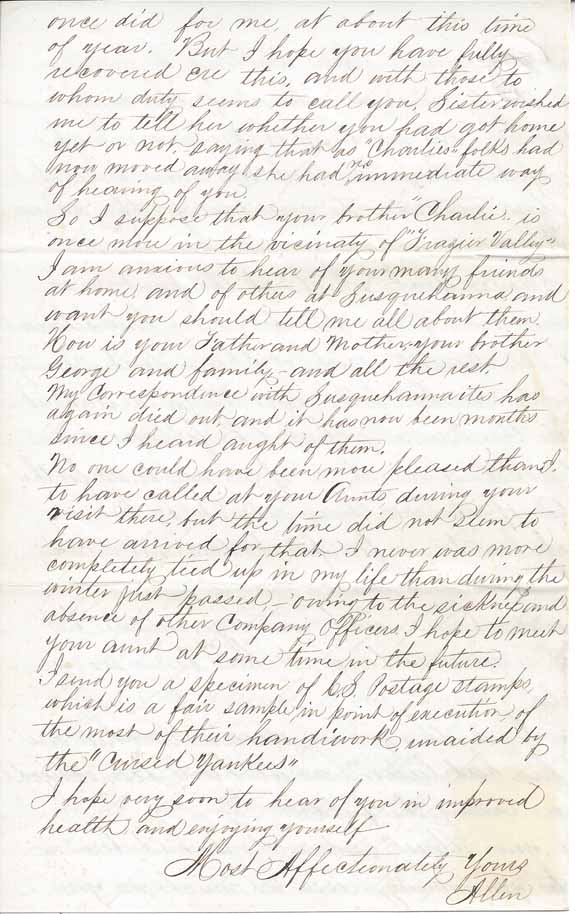 once did for me, at about this time
of year. But I hope you have fully
recovered ere this, and with those to
whom duty seems to call you, Sister wished
me to tell her whether you had got home
yet or not, saying that as "Charlies" folks had
now moved away she had no immediate way
of hearing of you.
So I suppose that your brother "Charlie" is
once more in the vicinaty of "Frazier Valley"
I am anxious to hear of your many friends
at home and of others at Susquehanna and
want you should tell me all about them.
How is your Father and Mother - your brother
George and family, - and all the rest.
My Correspondence with Susquehannaites has
again died out and it has now been months
since I heard aught of them.
No one could have been more pleased than I,
to have called at your Aunts during your
visit there, but the time did not seem to
have arrived for that. I never was more
completely tied up in my life than during the
winter just passed, - owing to the sickness and
absence of other Company Officers I hope to meet
your aunt at some time in the future.
I send you a specimen of C.S. Postage stamps,
which is a fair sample in point of execution, of
the most of their handiwork, unaided by
the "Cursed Yankees"
I hope very soon to hear of you in improved
health and enjoying yourself
Most Affectionately Yours
Allen